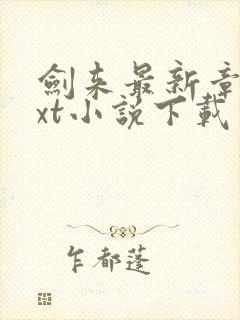 劍来最新章
xt小說下載
乍都蓬